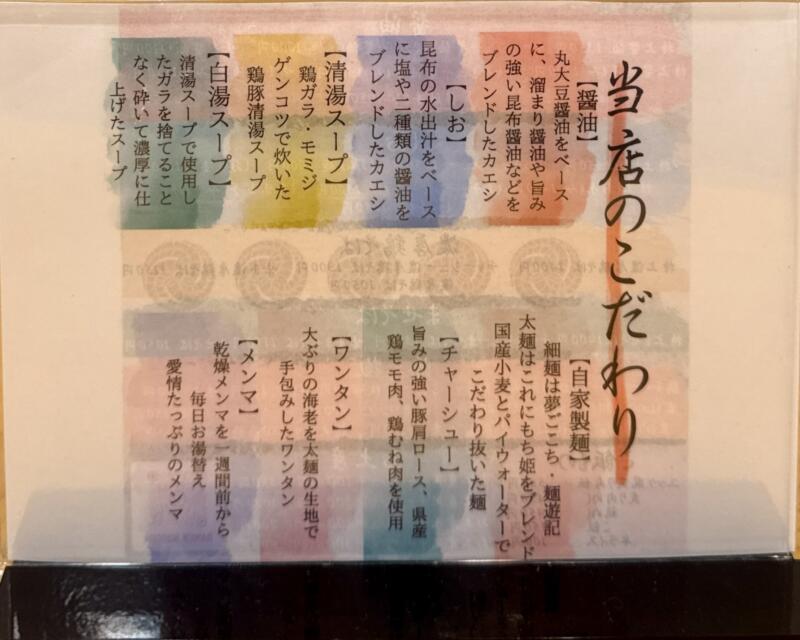 当店のこだわり
【醤油】
丸大豆醤油をベース
に、溜まり醤油や旨み
の強い昆布醤油などを
ブレンドしたカエシ
【しお】
昆布の水出汁をベース
に塩や二種類の醤油を
ブレンドしたカエシ
【清湯スープ】
鶏ガラ・モミジ
ゲンコツで炊いた
鶏豚清湯スープ
【白湯スープ】
清湯スープで使用し
たガラを捨てること
なく砕いて濃厚に仕
上げたスープ
【自家製麺】
細麺は夢ごこち・麺遊記
太麺はこれにもち姫をブレンド
国産小麦とパイウォーターで
こだわり抜いた麺
【チャーシュー】
旨みの強い豚肩ロース、県産
鶏モモ肉、鶏むね肉を使用
【ワンタン】
大ぶりの海老を太麺の生地で
手包みしたワンタン
【メンマ】
乾燥メンマを一週間前から
毎日お湯替え
愛情たっぷりのメンマ